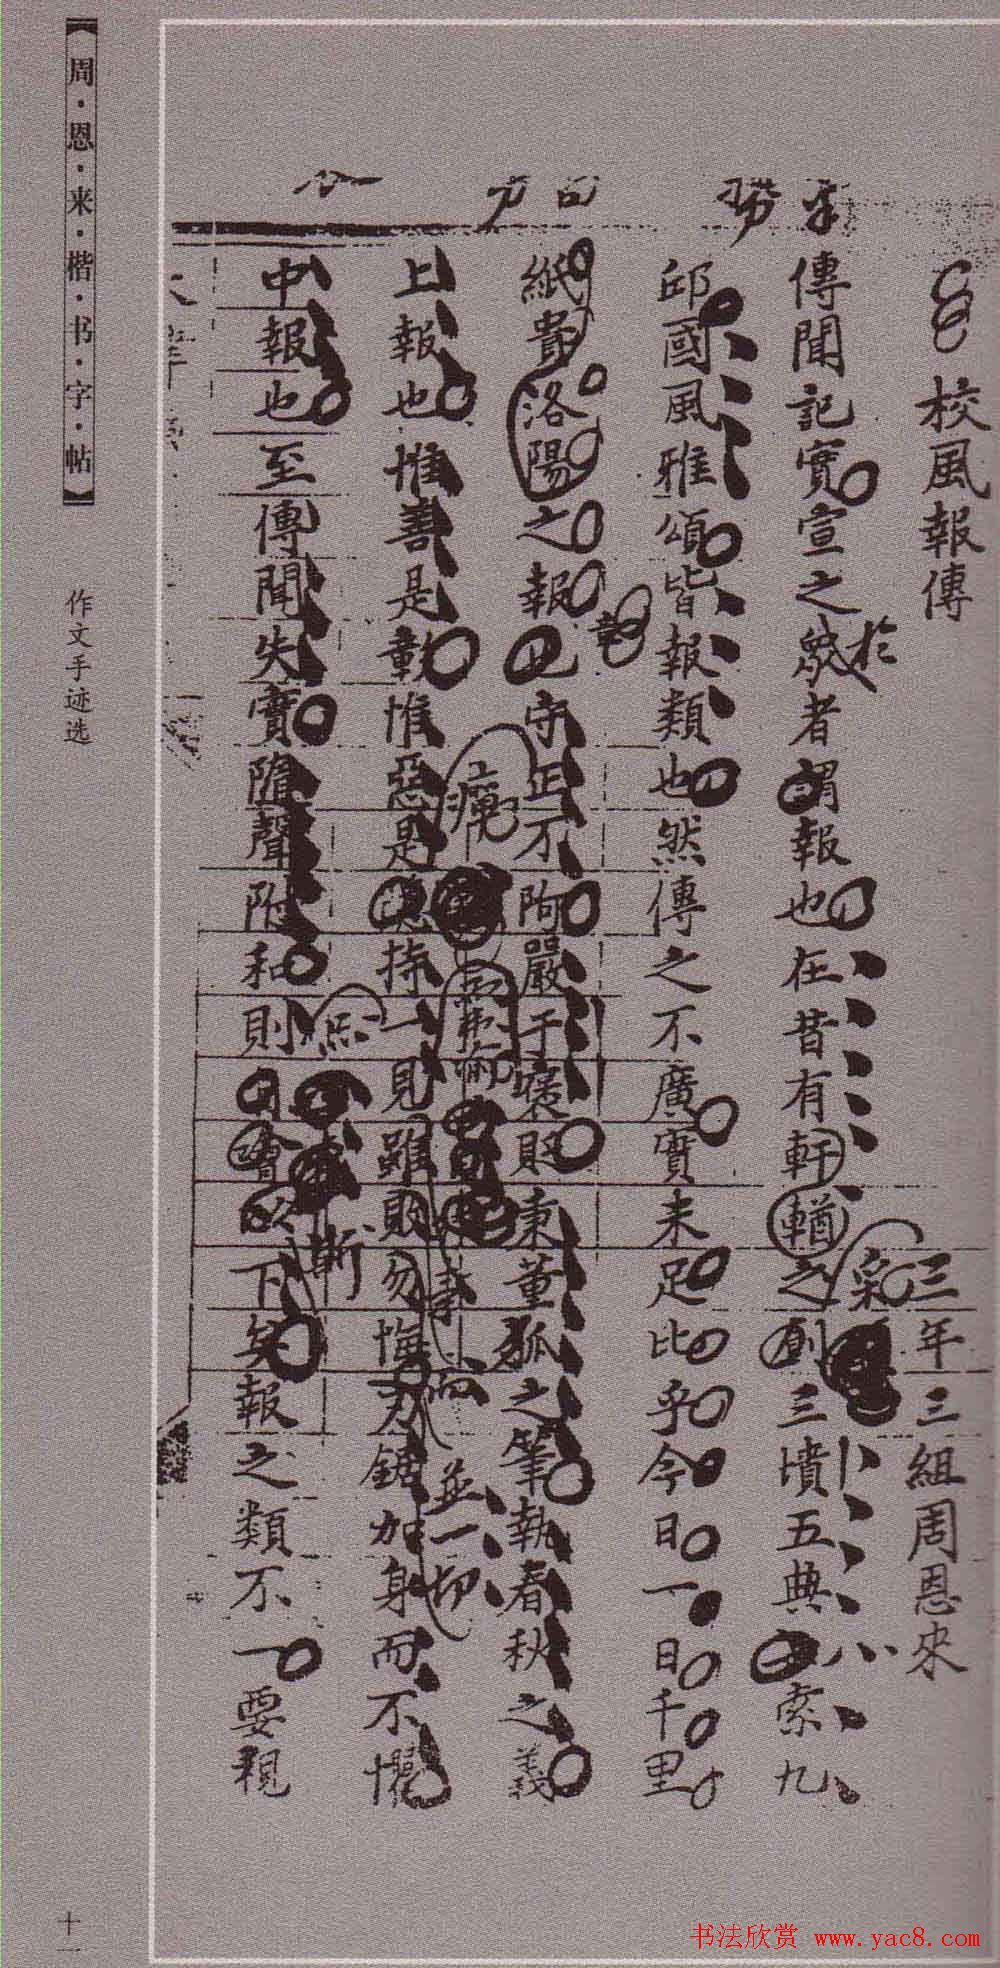 校風報傳
三年三組周恩來
傳聞記實宣之於眾者謂報也在昔有軒輶之創三墳五典索九
邱國風雅頌皆報類也然傳之不廣實未足比乎今日一日千里
紙貴洛陽之報也守正不阿嚴于褒貶秉董狐之筆執春秋之義
上報也惟善是彰惟惡是 持一見雖 勿悔刀鋸加身而不懼
並一切
中報也至傳聞失實隨聲附和則 斯下矣報之類不一要視
【周·恩·来·楷·书·字·帖】
作文手迹选
十一
书法欣赏 www.yac8.com